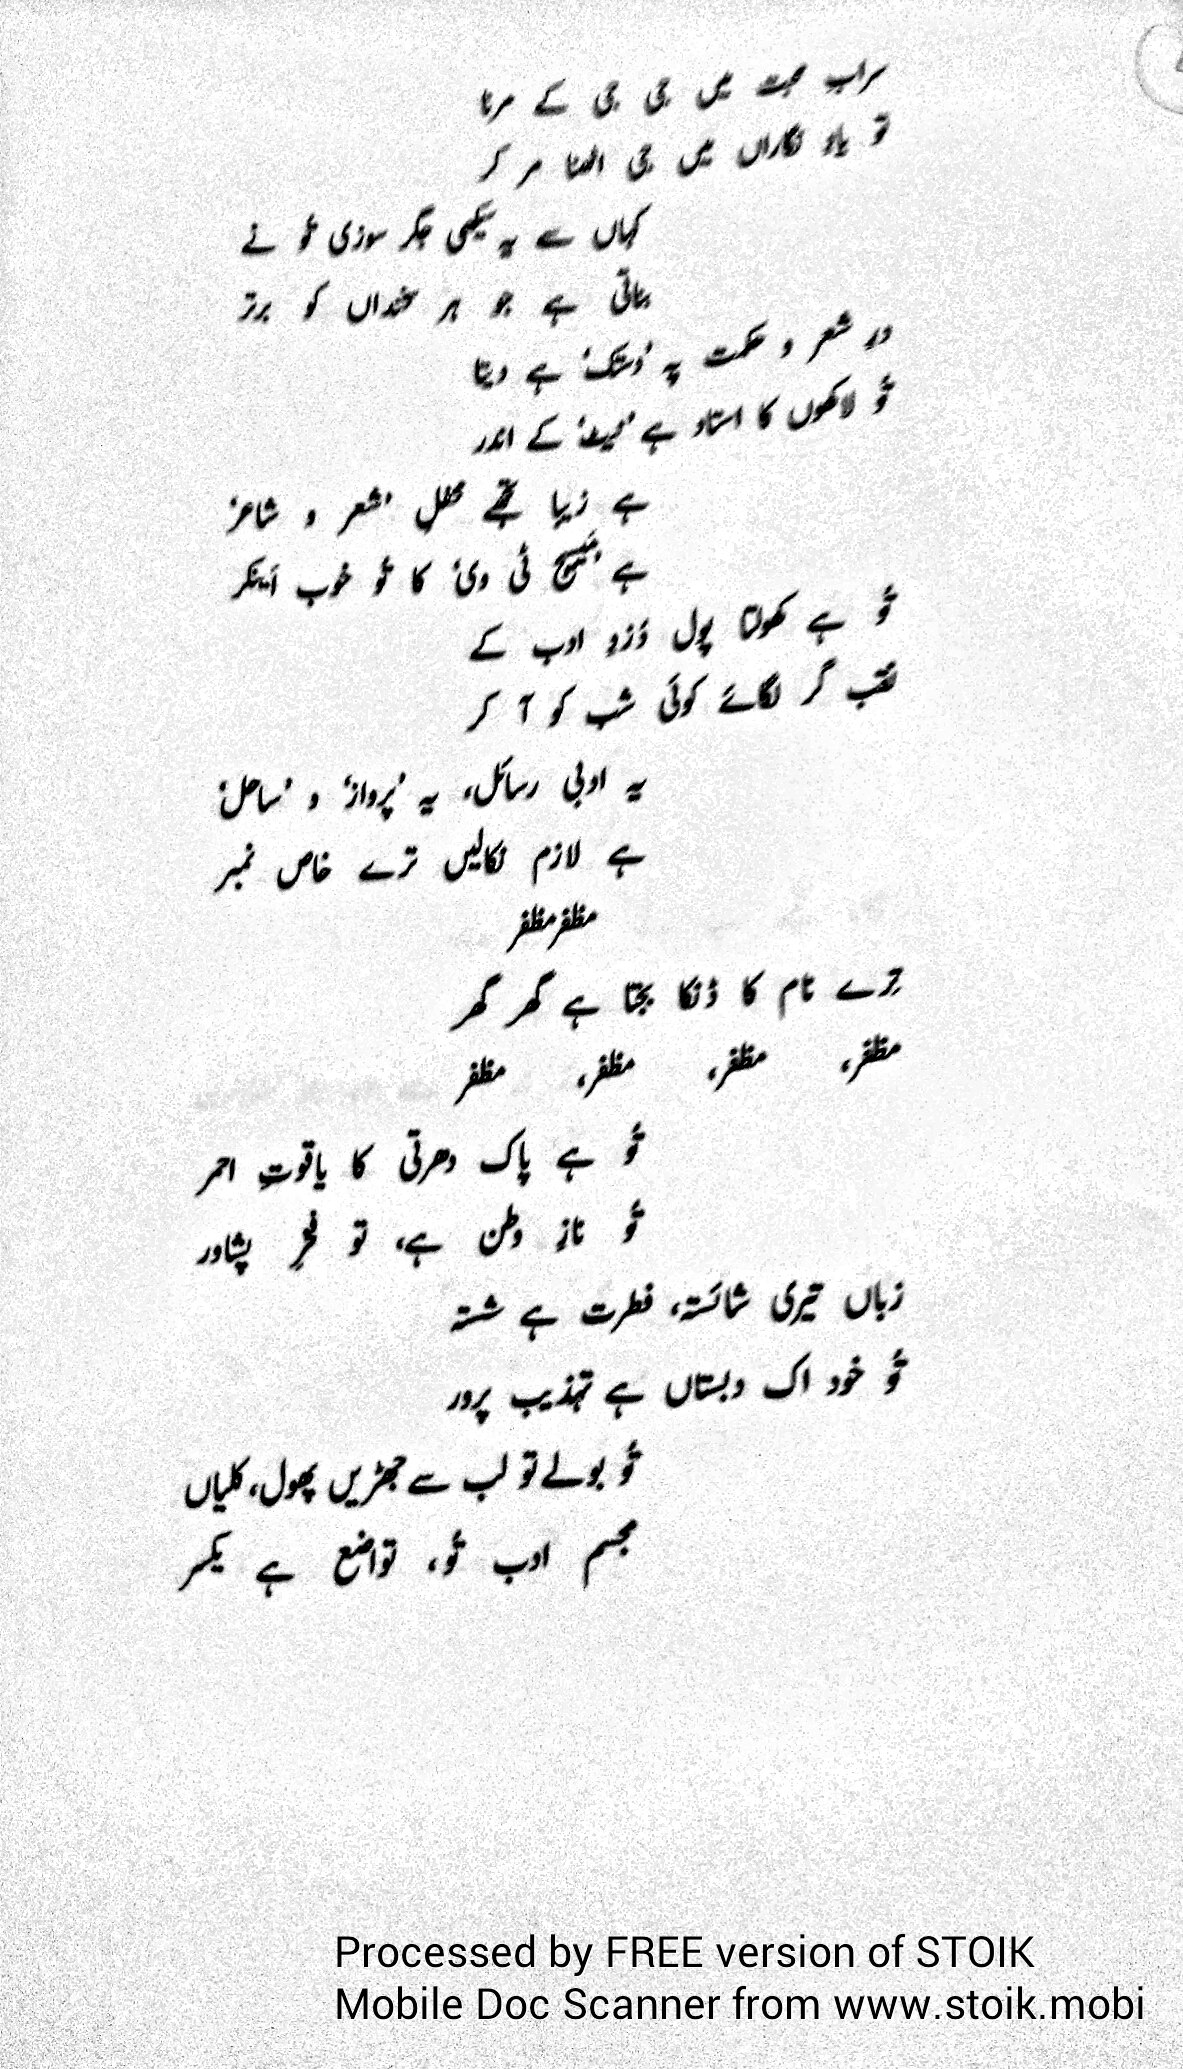 سرابِ محبت میں جی جی کے مرنا
تو یادِ نگاراں میں جی اٹھنا مر کر
کہاں سے یہ سیکھی جگر سوزی تُو نے
بناتی ہے جو ہر سخنداں کو برتر
درِ شعر و حکمت پہ ’دستک‘ ہے دیتا
تُو لاکھوں کا استاد ہے ’نیٹ‘ کے اندر
ہے زیبا تجھے محفلِ ’شعر و شاعر‘
ہے ’مَسیح ٹی وی‘ کا تُو خوب اَینکر
تُو ہے کھولتا پول دُزدِ ادب کے
نقب گر لگائے کوئی شب کو آ کر
یہ ادبی رسائل، یہ ’پرواز‘ و ’ساحل‘
ہے لازم نکالیں ترے خاص نمبر
مظفر مظفر
تِرے نام کا ڈنکا بجتا ہے گھر گھر
مظفر، مظفر، مظفر، مظفر
تُو ہے پاک دھرتی کا یاقوتِ احمر
تُو نازِ وطن ہے، تو فخرِ پشاور
زباں تیری شائستہ، فطرت ہے شستہ
تُو خود اک دبستاں ہے تہذیب پرور
تُو بولے تو لب سے جھڑیں پھول، کلیاں
مجسم ادب تُو، تواضع ہے یکسر
Processed by FREE version of STOIK
Mobile Doc Scanner from www.stoik.mobi